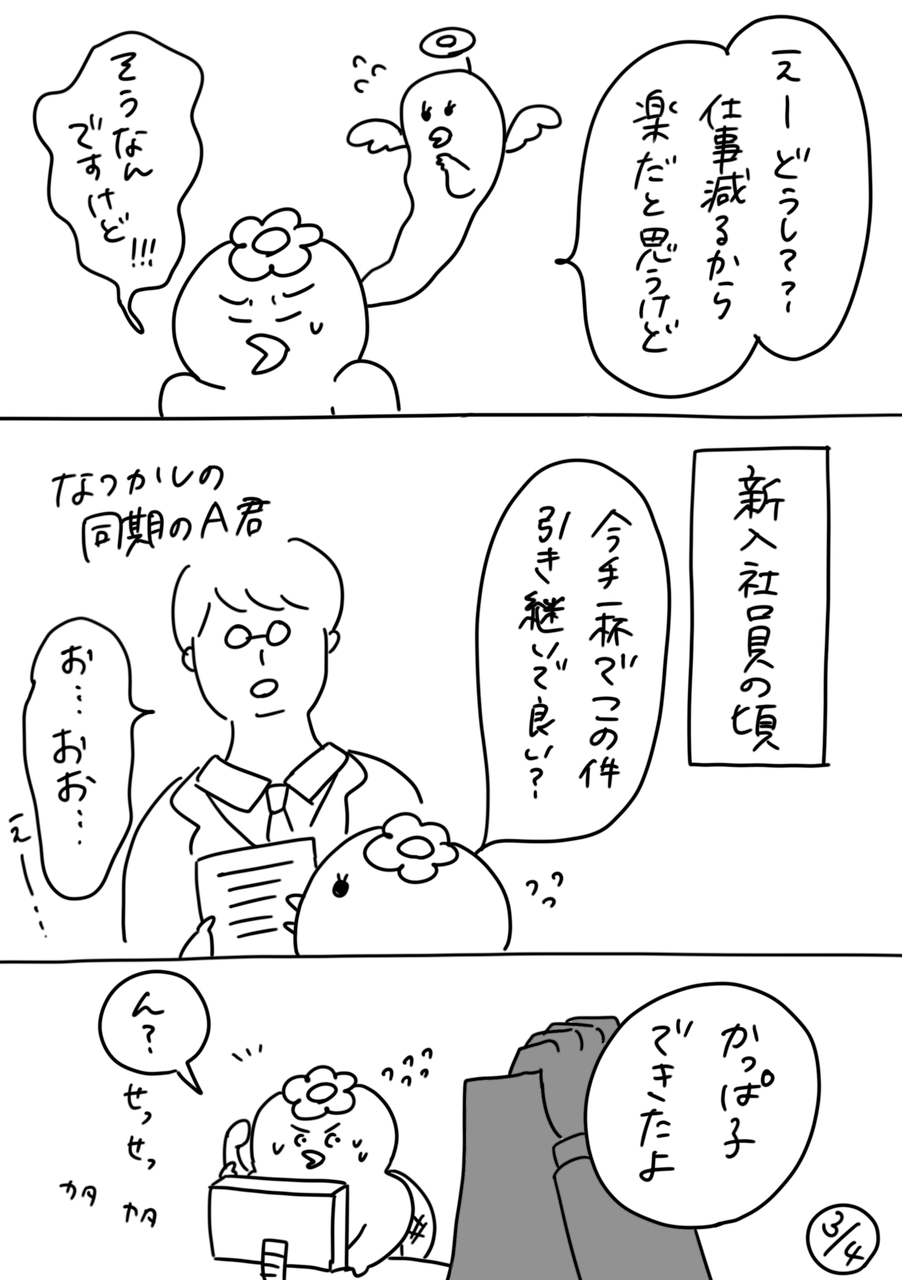 えーどうして??
仕事減るから
楽だと思うけど
そうなん
ですけど!!!
新入社員の頃
今手一杯でこの件
引き継いで良い?
なつかしの
同期のA君
お…おお…
え…
かっぱ子
できたよ
ん?
せっせっ
カタ
カタ
3/4